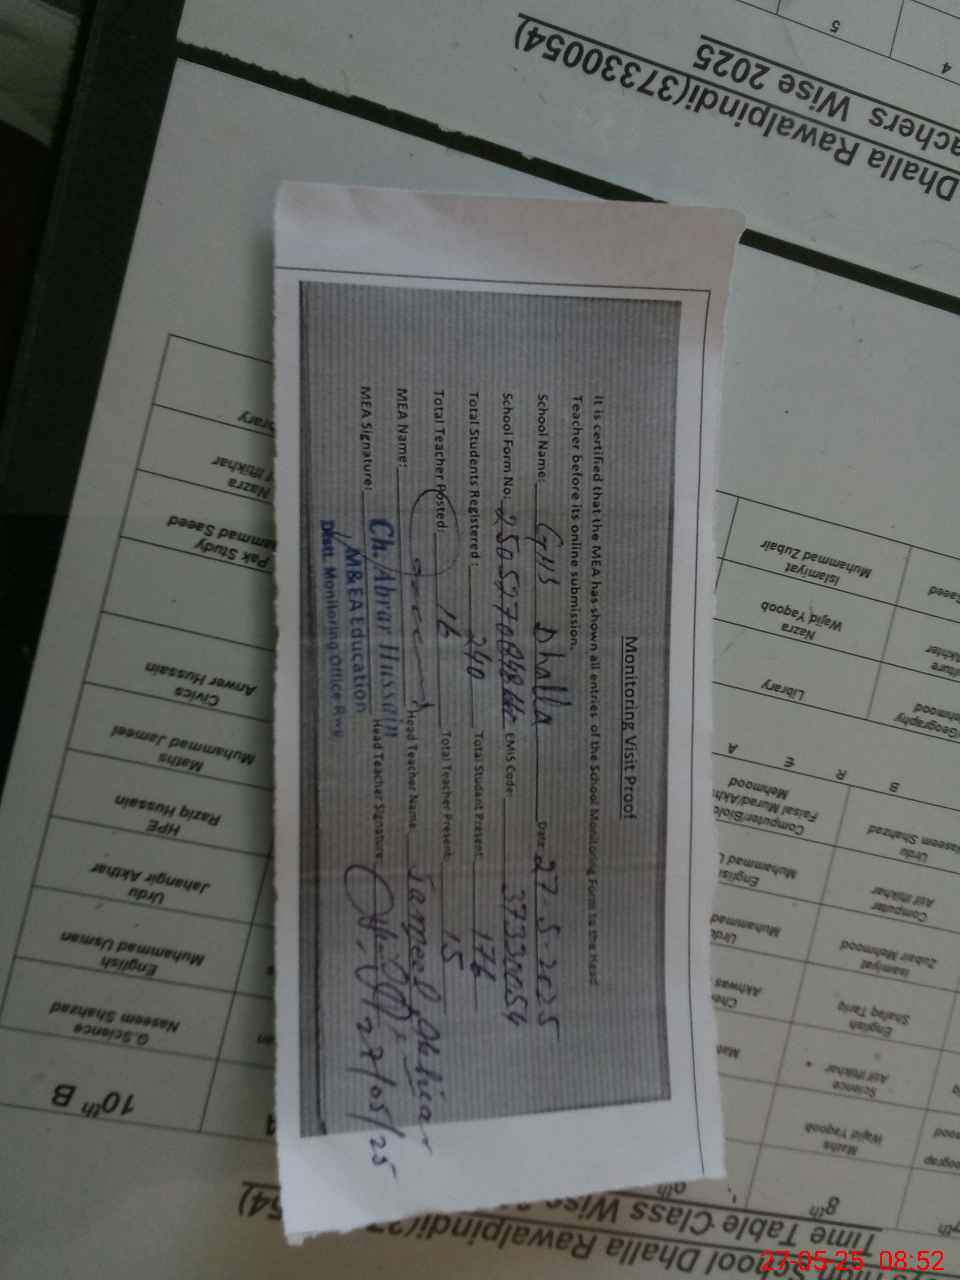 Monitoring Visit Proof
It is certified that the MEA has shown all entries of the School Monitoring Form to the Head
Teacher before its online submission.
School Name: GHS Dhalla Date: 27-5-2025
School Form No: EMIS Code: 37330054
Total Students Registered: 240 Total Student Present: 176
Total Teacher Posted: 16 Total Teacher Present: 15
MEA Name: Head Teacher Name
Ch. Abrar Hussain
MEA Signature: Head Teacher Signature 27/05/25
M&EA Education
Distt. Monitoring Office Rwp
Dhalla Rawalpindi(37330054)
achers Wise 2025
4
5
School Dhalla Rawalpindi(37
Time Table Class Wise
54)
8th
10th B
G.Science
Naseem Shahzad
English
Muhammad Usman
Urdu
Jahangir Akthar
HPE
Raziq Hussain
Maths
Muhammad Jameel
Civics
Anwer Hussain
Pak Study
ammad Saeed
Nazra
f Iftikhar
rary
Maths
Wajid Yaqoob
Science
Asif Iftikhar
English
Shafaq Tariq
Isamiyat
Zubair Mehmood
Computer
Asif Iftikhar
Urdu
Naseem Shahzad
B R E A
Library
Nazra
Wajid Yaqoob
Islamiyat
Muhammad Zubair
Computer/Biolo
Faisal Murad/Akh
Mehmood
English
Muhammad U
Urdu
Muhammad
Akhwas
/Geography
Mehmood
Akhter
Saeed
27-05-25 08:52